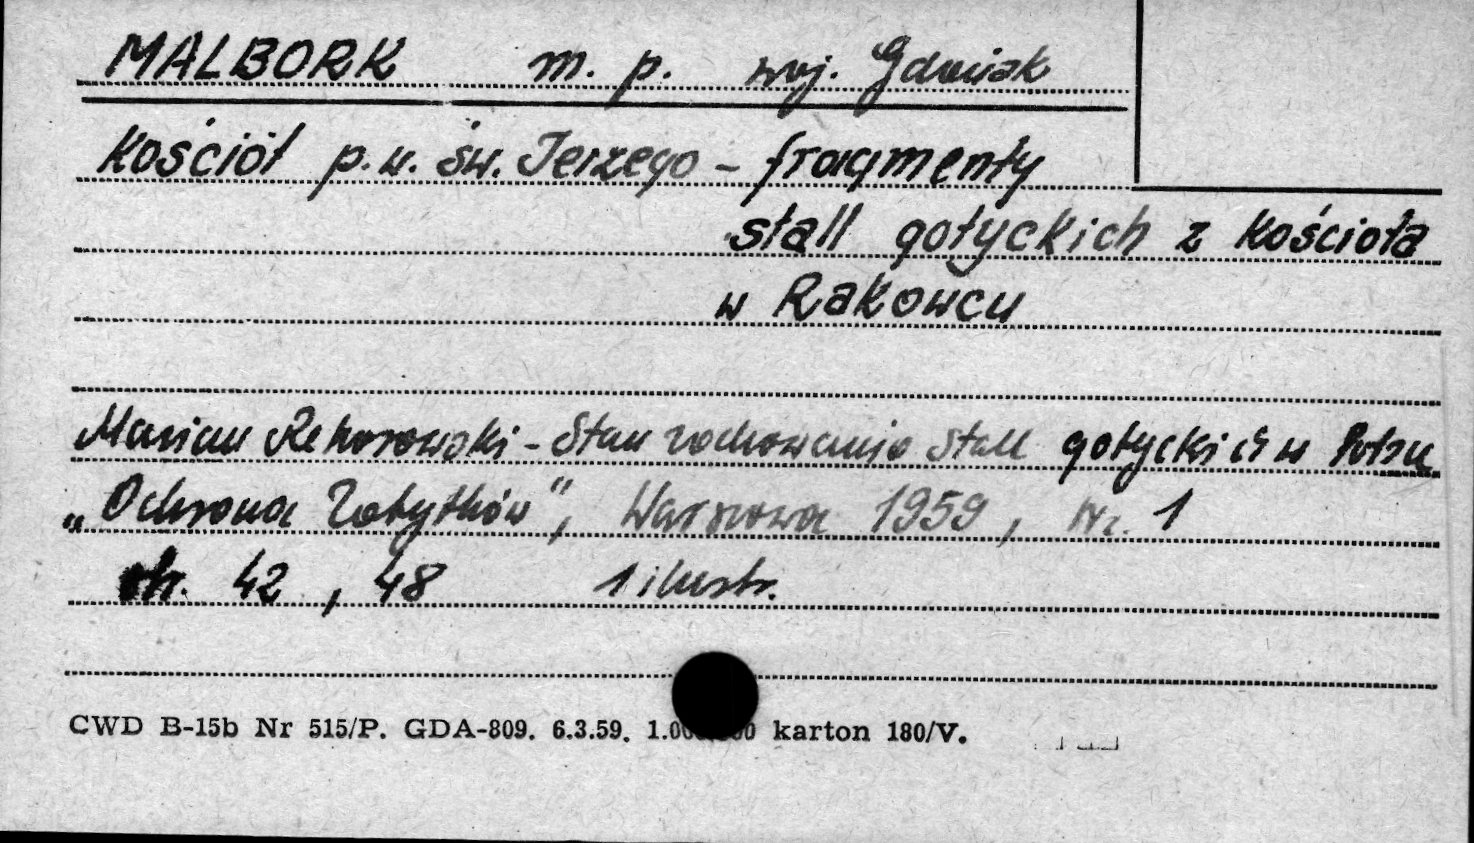 MALBORK m. p. woj. Gdańsk
Kościół p.w. św. Jerzego - fragmenty
stall gotyckich z kościoła
w Rakowcu
Marian Rehorowski - Stan zachowania stall gotyckich w Polsce
„Ochrona Zabytków", Warszawa 1959, nr. 1
str. 42, 48 1 ilustr.
CWD B-15b Nr 515/P. GDA-809. 6.3.59. karton 180/V.